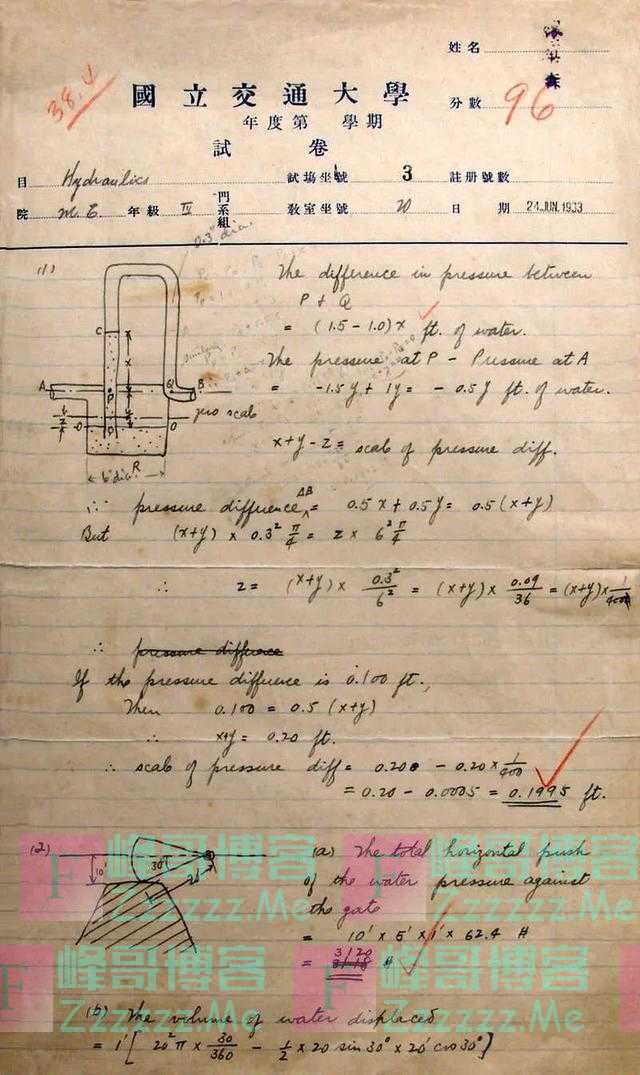 姓名
38.4
國立交通大學
分數 96
年度第 學期
試 卷
目 Hydraulics 試場坐號 3 註册號數
院 M.E. 年級 IV 門系組 教室坐號 20 日期 24 JUN. 1933
0.3" dia.
(1) The difference in pressure between
P + Q
= (1.5 - 1.0) x ft. of water.
The pressure at P - Pressure at A
= -1.5 y + 1y = - 0.5 y ft. of water.
C
x
A
P
Q
B
zero scale
O
O
R
6" dia.
x+y-z = scale of pressure diff.
∴ pressure difference AB = 0.5 x + 0.5 y = 0.5 (x+y)
But (x+y) × 0.3² π/4 = z × 6² π/4
∴ z = (x+y) × 0.3²/6² = (x+y) × 0.09/36 = (x+y) × 1/400
∴ pressure difference
If the pressure difference is 0.100 ft.,
Then 0.100 = 0.5 (x+y)
∴ x+y = 0.20 ft.
∴ scale of pressure diff = 0.200 - 0.20 × 1/400
= 0.20 - 0.0005 = 0.1995 ft.
(2) (a) The total horizontal push
10'
30°
20'
of the water pressure against
the gate
= 10' × 5' × 1' × 62.4 #
= 3120 #
(b) The volume of water displaced
= 1' [ 20² π × 30/360 - 1/2 × 20 sin 30° × 20' cos 30° ]
F 峰哥博客
Zzzzzz.Me
F 峰哥博客
Zzzzzz.Me
峰哥博客
Zzzzzz.Me
F 峰哥博客
Zzzzzz.Me
F 峰哥博客
Zzzzzz.Me